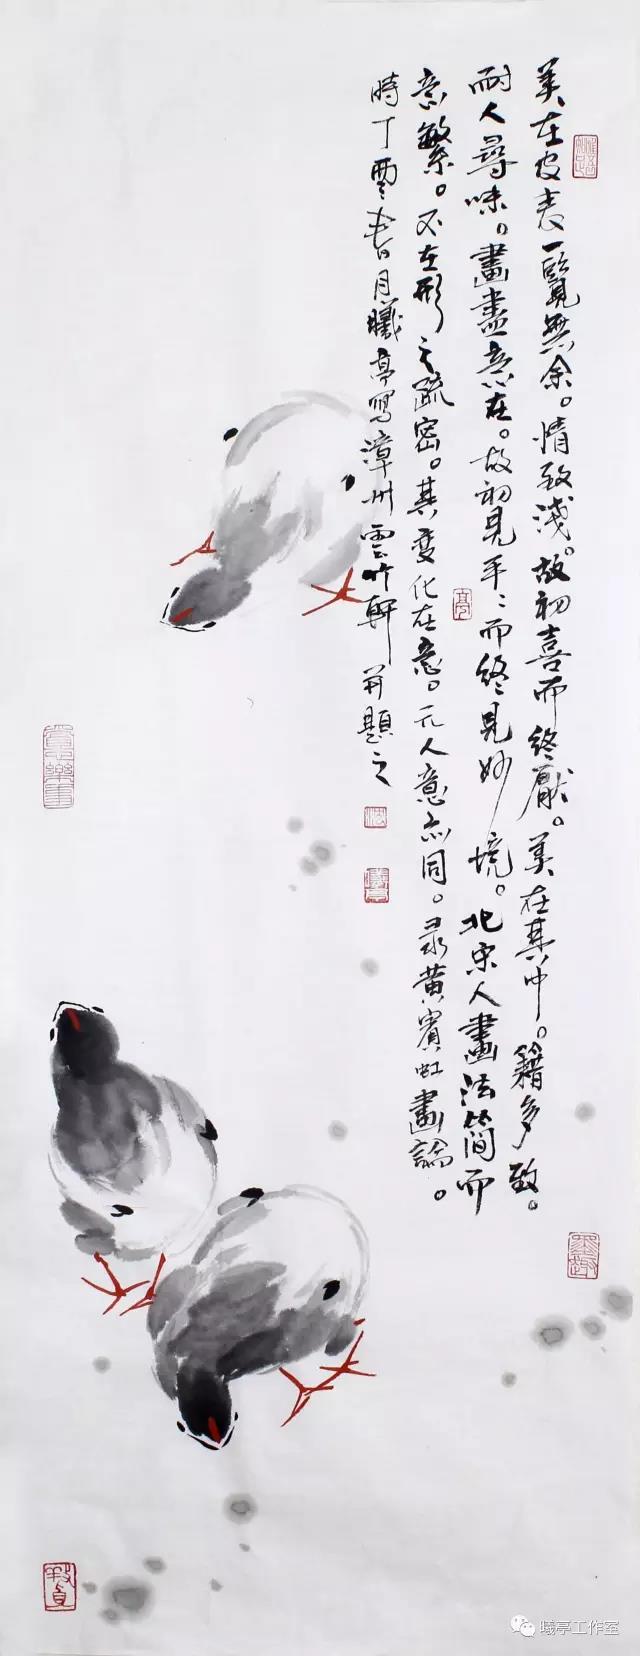 美在皮表一覽無余。情致淺。故初喜而終厭。美在其中。籍多致。
耐人尋味。畫盡意在。故初見平:而終見妙境。北宋人畫法簡而
意繁。不在形之疏密。其變化在意。元人意亦同。录黄賓虹畫論。
時丁酉春月曦亭寫漳州雲竹軒并題之
亭
曦亭
墨趣
曦亭工作室